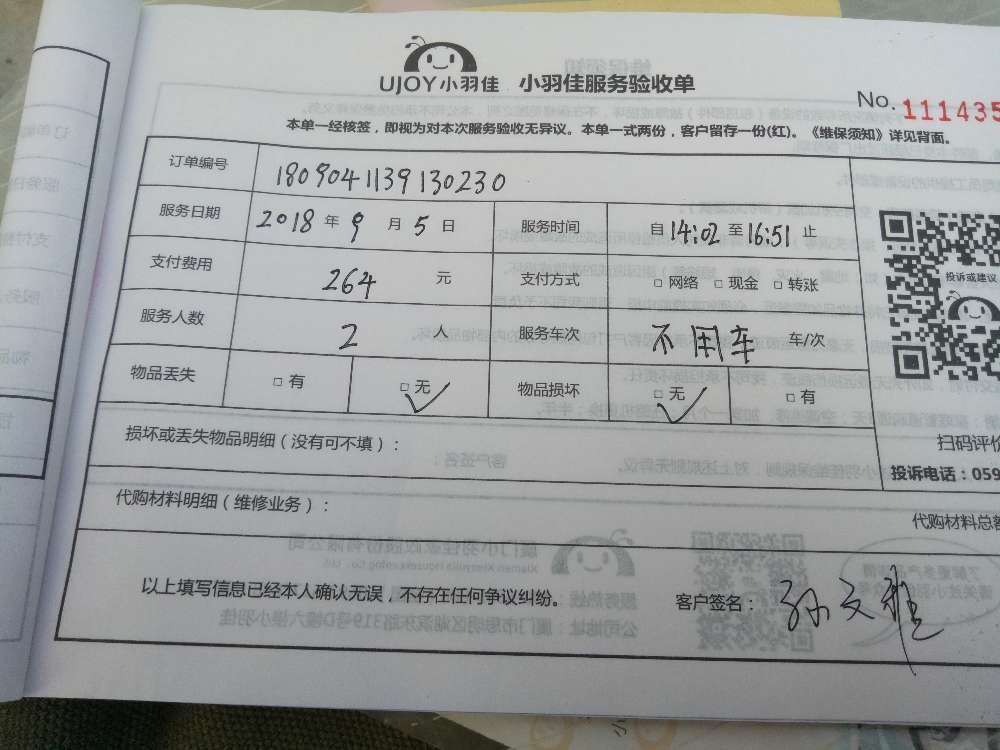 UJOY小羽佳 小羽佳服务验收单
No. 111435
本单一经核签，即视为对本次服务验收无异议。本单一式两份，客户留存一份(红)。《维保须知》详见背面。
订单编号 1809041139130230
服务日期 2018 年 9 月 5 日 服务时间 自 14:02 至 16:51 止
支付费用 264 元 支付方式 □ 网络 □ 现金 □ 转账
投诉或建议
服务人数 2 人 服务车次 不用车 车/次
物品丢失 □ 有 □ 无 ✓ 物品损坏 □ 无 ✓ □ 有
损坏或丢失物品明细（没有可不填）：
扫码评价
投诉电话：059
代购材料明细（维修业务）：
代购材料总
以上填写信息已经本人确认无误，不存在任何争议纠纷。 客户签名： 孙文雅